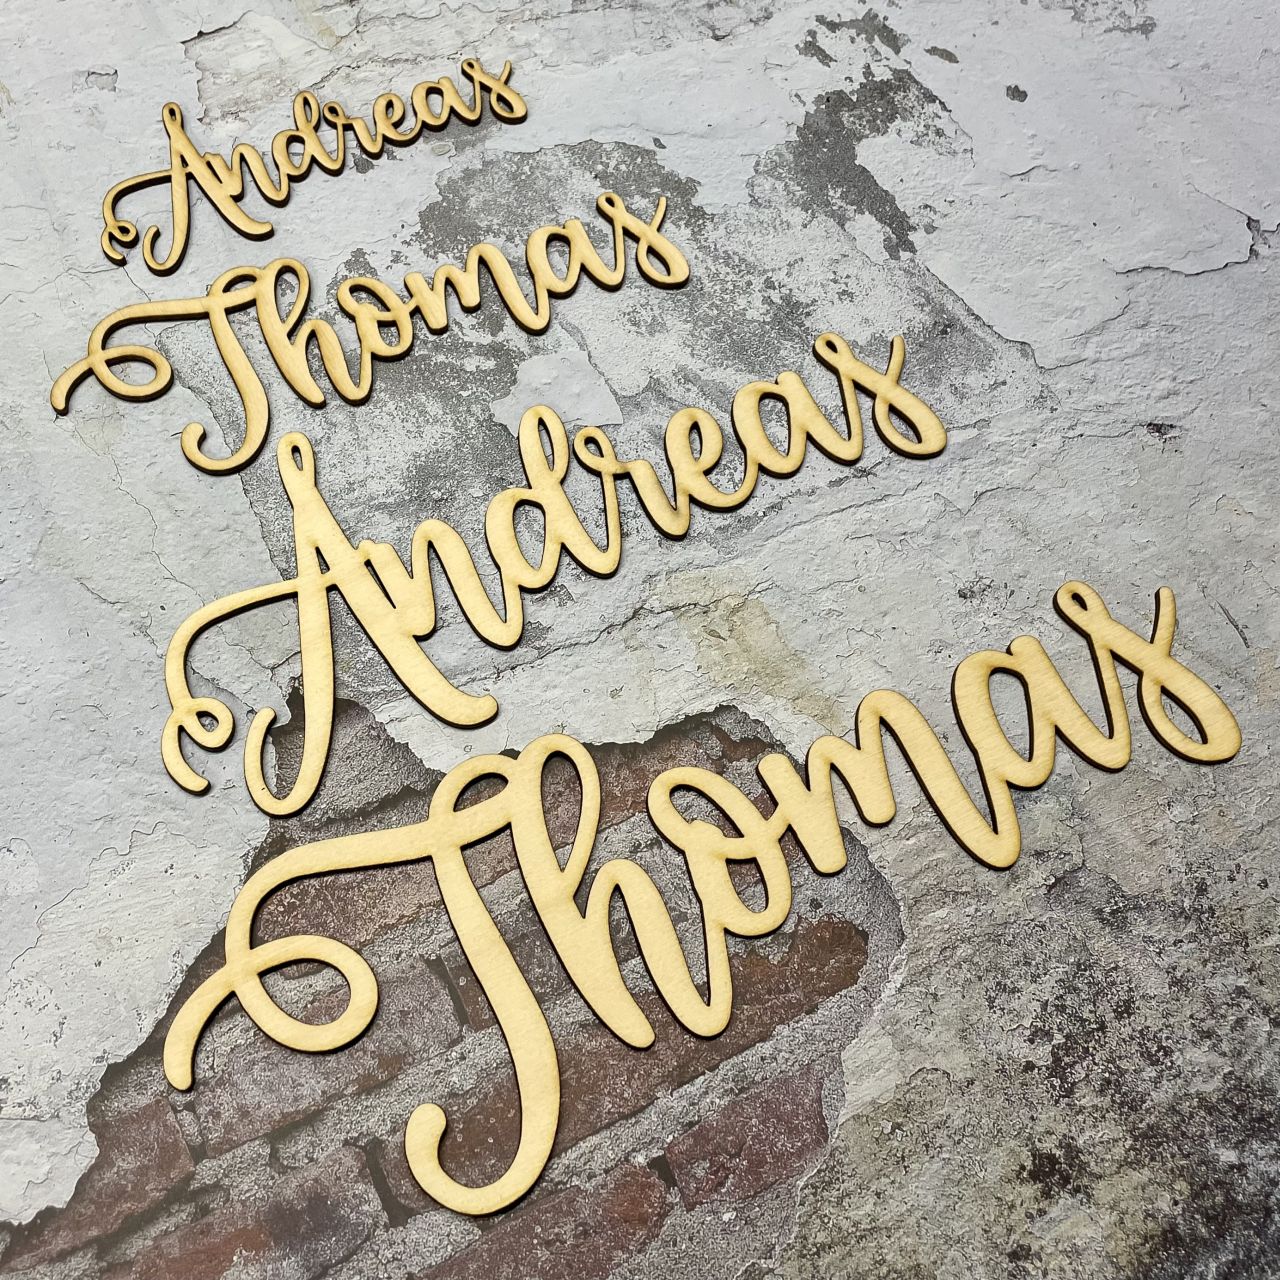 Andreas
Thomas
Andreas
Thomas